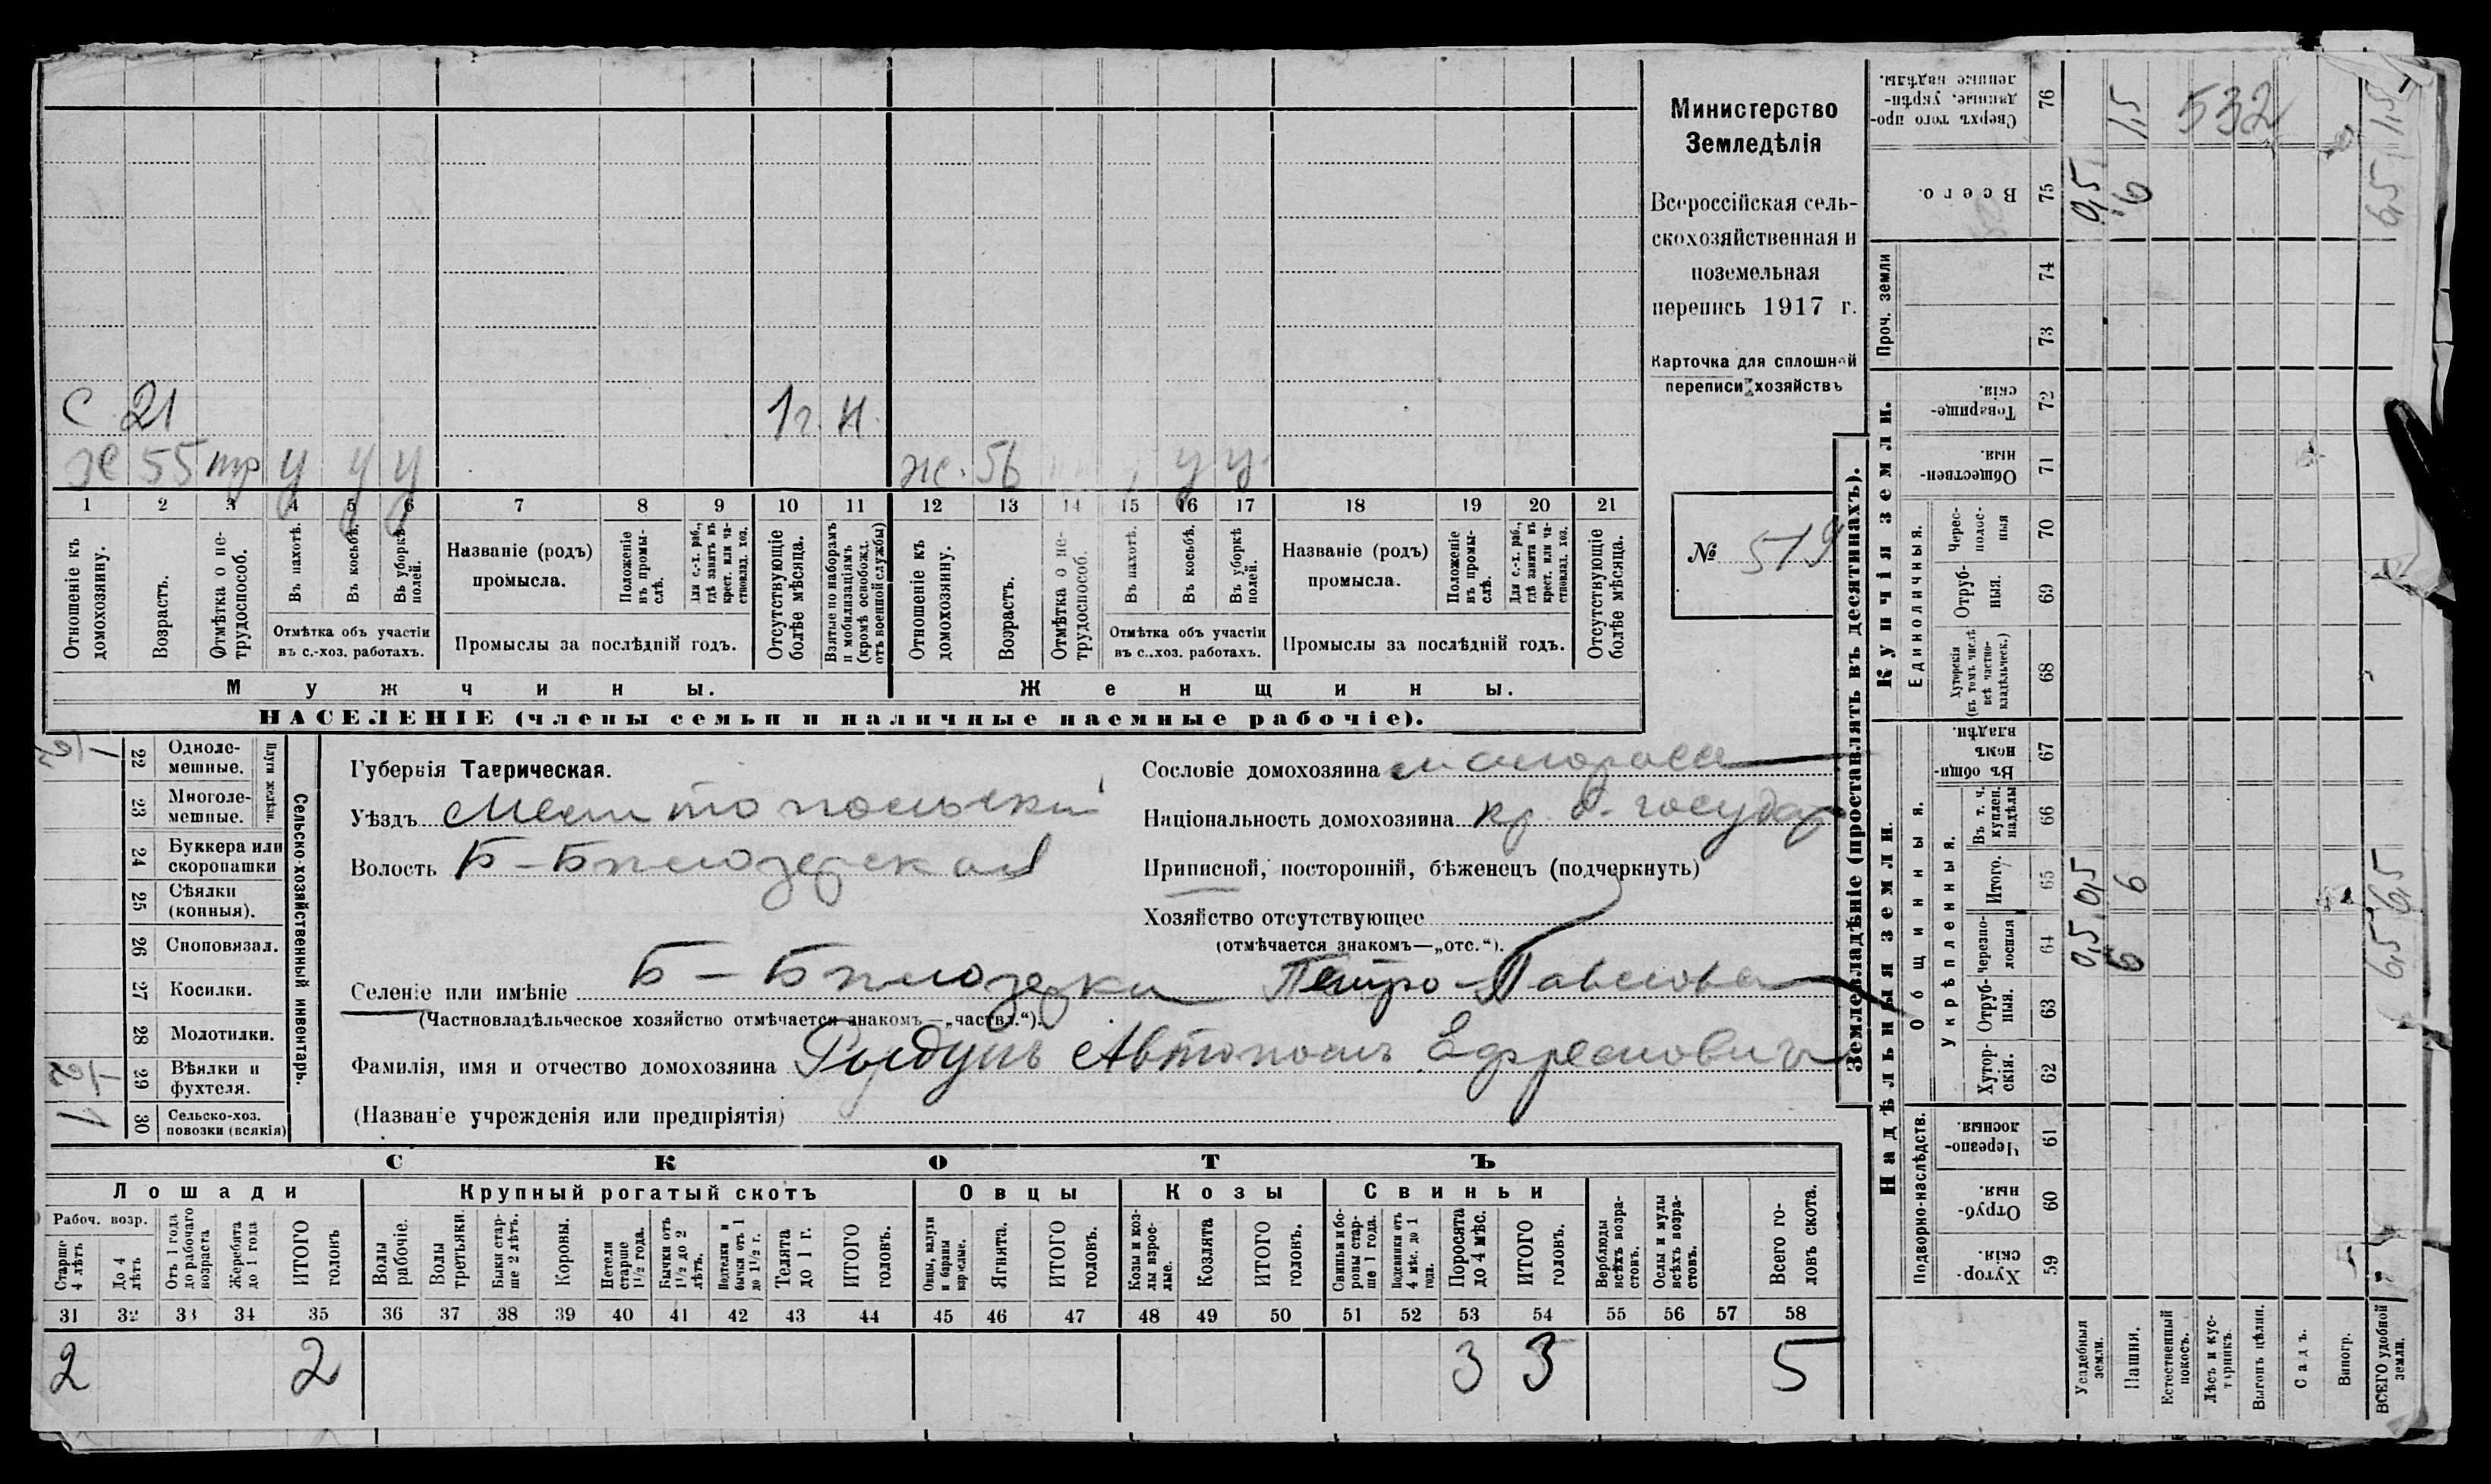 С 21 1 г. н.
х 55 тр у у у ж. 56 у у.
1 2 3 4 5 6 7 8 9 10 11 12 13 14 15 16 17 18 19 20 21
Отношеніе къ домохозяину.
Возрастъ.
Отмѣтка о не-трудоспособ.
Въ пахотѣ.
Въ косьбѣ.
Въ уборкѣ полей.
Отмѣтка объ участіи
въ с.-хоз. работахъ.
Названіе (родъ)
промысла.
Положеніе въ промы-слѣ.
Для с.-х. раб., гдѣ занятъ въ крест. или ча-стновлад. хоз.
Промыслы за послѣдній годъ.
Отсутствующіе болѣе мѣсяца.
Взятые по наборамъ и мобилизаціямъ (кромѣ освобожд. отъ военной службы)
Отношеніе къ домохозяину.
Возрастъ.
Отмѣтка о не-трудоспособ.
Въ пахотѣ.
Въ косьбѣ.
Въ уборкѣ полей.
Отмѣтка объ участіи
въ с.-хоз. работахъ.
Названіе (родъ)
промысла.
Положеніе въ промы-слѣ.
Для с.-х. раб., гдѣ занята въ крест. или ча-стновлад. хоз.
Промыслы за послѣдній годъ.
Отсутствующіе болѣе мѣсяца.
Мужчины. Женщины.
НАСЕЛЕНІЕ (члены семьи и наличные наемные рабочіе).
Министерство
Земледѣлія
Всероссійская сель-
скохозяйственная и
поземельная
перепись 1917 г.
Карточка для сплошной
переписи хозяйствъ
№ 519
22 Одноле-мешные.
23 Многоле-мешные.
Плуги желѣзн.
24 Буккера или скоропашки
25 Сѣялки (конныя).
26 Сноповязал.
27 Косилки.
28 Молотилки.
29 Вѣялки и фухтеля.
30 Сельско-хоз. повозки (всякія) 1
Сельско-хозяйственный инвентарь.
Губернія Таврическая.
Уѣздъ Мелитопольскій
Волость Б-Бѣлозерская
Сословіе домохозяина малоросс
Національность домохозяина кр. б. государ
Приписной, посторонній, бѣженецъ (подчеркнуть)
Хозяйство отсутствующее
(отмѣчается знакомъ—„отс.“).
Селеніе или имѣніе Б-Бѣлозерка Петро-Павловка
(Частновладѣльческое хозяйство отмѣчается знакомъ—„частвл.“).
Фамилія, имя и отчество домохозяина Автономъ Ефремовичъ
(Названіе учрежденія или предпріятія)
СКОТЪ
Лошади Крупный рогатый скотъ Овцы Козы Свиньи
Рабоч. возр.
Старше 4 лѣтъ
До 4 лѣтъ
Отъ 1 года до рабочаго возраста
Жеребята до 1 года
ИТОГО головъ
Волы рабочіе.
Волы третьяки.
Быки стар-ше 2 лѣтъ.
Коровы.
Нетели старше 1½ года.
Бычки отъ 1½ до 2 лѣтъ.
Подтелки и бычки отъ 1 до 1½ г.
Телята до 1 г.
ИТОГО головъ.
Овцы, валухи и бараны взрослые.
Ягнята.
ИТОГО головъ.
Козы и коз-лы взрос-лые.
Козлята
ИТОГО головъ.
Свиньи и бо-ровы стар-ше 1 года.
Подсвинки отъ 4 мѣс. до 1 года.
Поросята до 4 мѣс.
ИТОГО головъ.
Верблюды всѣхъ возра-стовъ.
Ослы и мулы всѣхъ возра-стовъ.
Всего го-ловъ скота.
31 32 33 34 35 36 37 38 39 40 41 42 43 44 45 46 47 48 49 50 51 52 53 54 55 56 57 58
2 2 3 3 5
Землевладѣніе (проставлять въ десятинахъ).
Надѣльныя земли. Купчія земли. Проч. земли
Подворно-наслѣдств. Общинныя. Единоличныя.
Укрѣпленныя.
Хутор-скія. 59
Отруб-ныя. 60
Черезпо-лосныя. 61
Хутор-скія. 62
Отруб-ныя. 63
Черезпо-лосныя 64 0,5 6 6,5
Итого. 65 0,5 6 6,5
Въ т. ч. куплен. надѣлы 66
Въ общин-номъ владѣн. 67
Хуторскія (въ томъ числѣ всѣ частно-владѣльческ.) 68
Отруб-ныя. 69
Черес-полос-ныя 70
Обществен-ныя. 71
Товарище-скія. 72
73
74
Всего. 75 0,5 6 6,5
Сверхъ того про-данные, укрѣп-ленные надѣлы. 76 1,5 532 1,5
Усадебныя земли.
Пашня.
Естественный покосъ.
Лѣсъ и кус-тарникъ.
Выгонъ цѣлин.
Садъ.
Виногр.
ВСЕГО удобной земли.